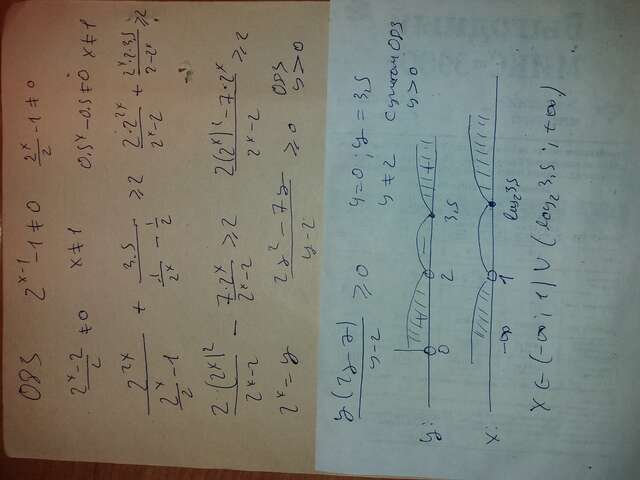 ОДЗ 2^(x-1) - 1 ≠ 0 2^x/2 - 1 ≠ 0
(2^x - 2)/2 ≠ 0 x ≠ 1 0,5^x - 0,5 ≠ 0 x ≠ 1
2^(2x)/(2^x/2 - 1) + 3,5/(1/2^x - 1/2) ≥ 2 2·2^(2x)/(2^x - 2) + 2^x·2·3,5/(2 - 2^x) ≥ 2
2·(2^x)^2/(2^x - 2) - 7·2^x/(2^x - 2) ≥ 2 (2(2^x)^2 - 7·2^x)/(2^x - 2) ≥ 2
2^x = y (2y^2 - 7y)/(y - 2) ≥ 0 ОДЗ y > 0
y(2y - 7)/(y - 2) ≥ 0 y = 0; y = 3,5
y ≠ 2 ОДЗ
y > 0
y: 0 2 3,5
- +
x: -∞ 1 log₂3,5
x ∈ (-∞; 1) ∪ (log₂3,5; +∞)